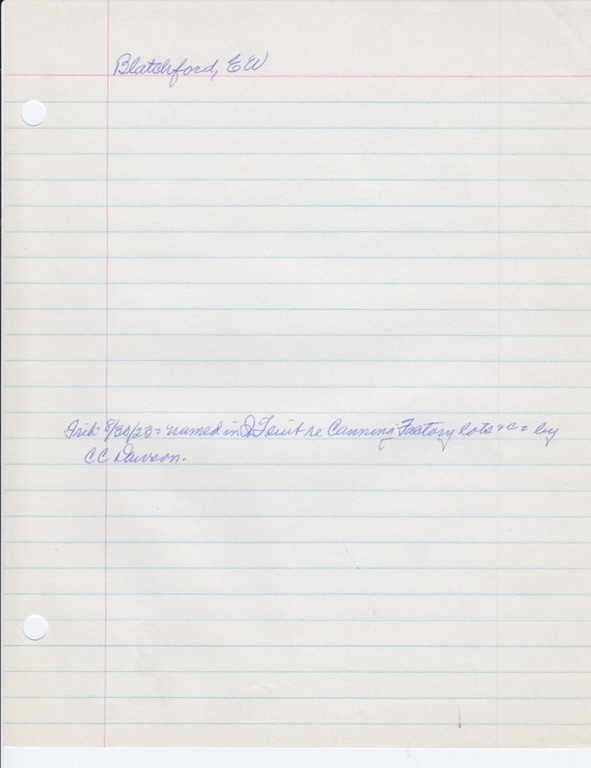 Blatchford, EW
Trib 8/30/23 = named in QT suit re Canning Factory lots &c = by
CC Dawson.